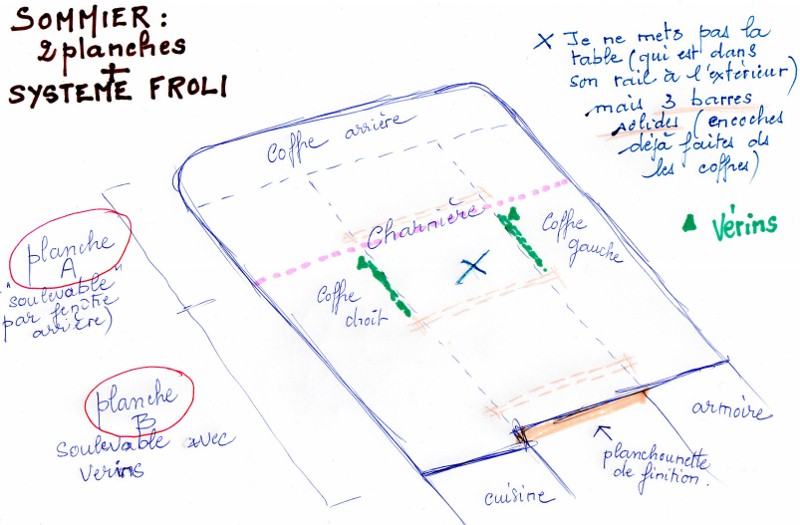 SOMMIER :
2 planches
+
SYSTEME FROLI
X Je ne mets pas la
table (qui est dans
son rail à l'extérieur)
mais 3 barres
solides (encoches
déjà faites ds
les coffres)
Vérins
Coffre arrière
Charnière
Coffre
gauche
Coffre
droit
X
planche
A
"soulevable"
par fenêtre
arrière)
planche
B
soulevable avec
verins
armoire
planchounette
de finition.
cuisine